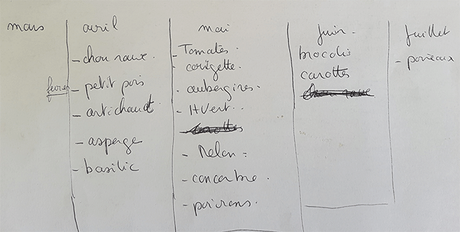 mars
avril
- chou raux.
fevrier
- petit pois
- artichaut
- asperge
- basilic
mai
- Tomates.
- corigette.
- aubergines.
- HVert.
- Melon.
- concombre.
- poivrons.
juin
brocolis
carottes
juillet
- poireaux